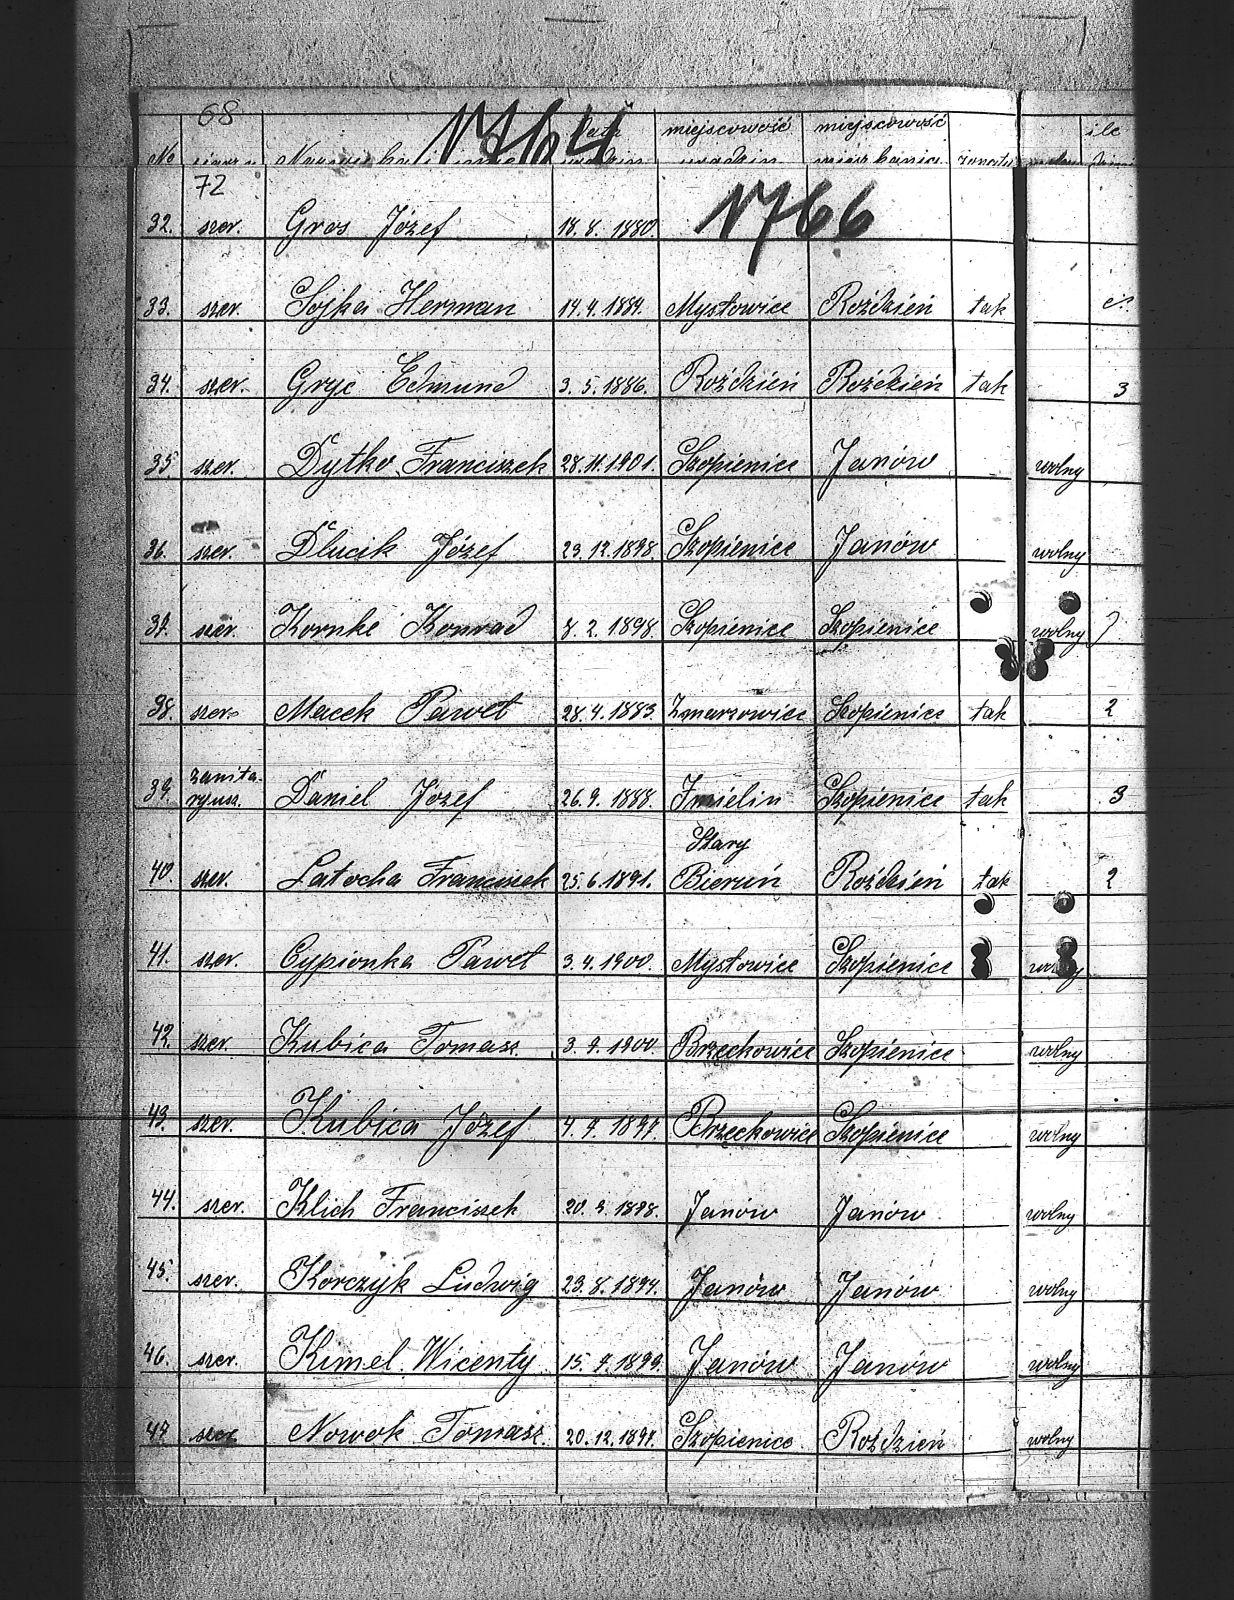 68
1764
miejscowość miejscowość ile
No Nazwisko i imię żonaty
72
1766
32. szer. Gros Józef 18. 8. 1880.
33. szer. Sojka Herman 14. 4. 1884. Mysłowice Roździeń tak
34. szer. Gryc Edmund 3. 5. 1886. Roździeń Roździeń tak 3
35. szer. Dytko Franciszek 28. 11. 1901. Szopienice Janów wolny
36. szer. Dlucik Józef 23. 12. 1898. Szopienice Janów wolny
37. szer. Kornke Konrad 8. 2. 1898. Szopienice Szopienice wolny
38. szer. Macek Paweł 28. 4. 1883. Zmarzowice Szopienice tak 2
39. zanita-
ryusz. Daniel Jozef 26. 9. 1888. Imielin Szopienice tak 3
Stary
40. szer. Latocha Franciszek 25. 6. 1891. Bieruń Roździeń tak 2
41. szer. Cypionka Paweł 3. 4. 1900. Mysłowice Szopienice
42. szer. Kubica Tomasz 3. 9. 1900 Brzeckowice Szopienice wolny
43. szer. Kubica Józef 4. 9. Brzeckowice Szopienice wolny
44. szer. Klich Franciszek 20. 3. 1898. Janów Janów wolny
45. szer. Korczyk Ludwig 23. 8. 1894. Janów Janów wolny
46. szer. Kimel Wicenty 15. 7. 1899. Janów Janów wolny
47. szer. Nowok Tomasz. 20. 12. 1897. Szopienice Roździeń wolny